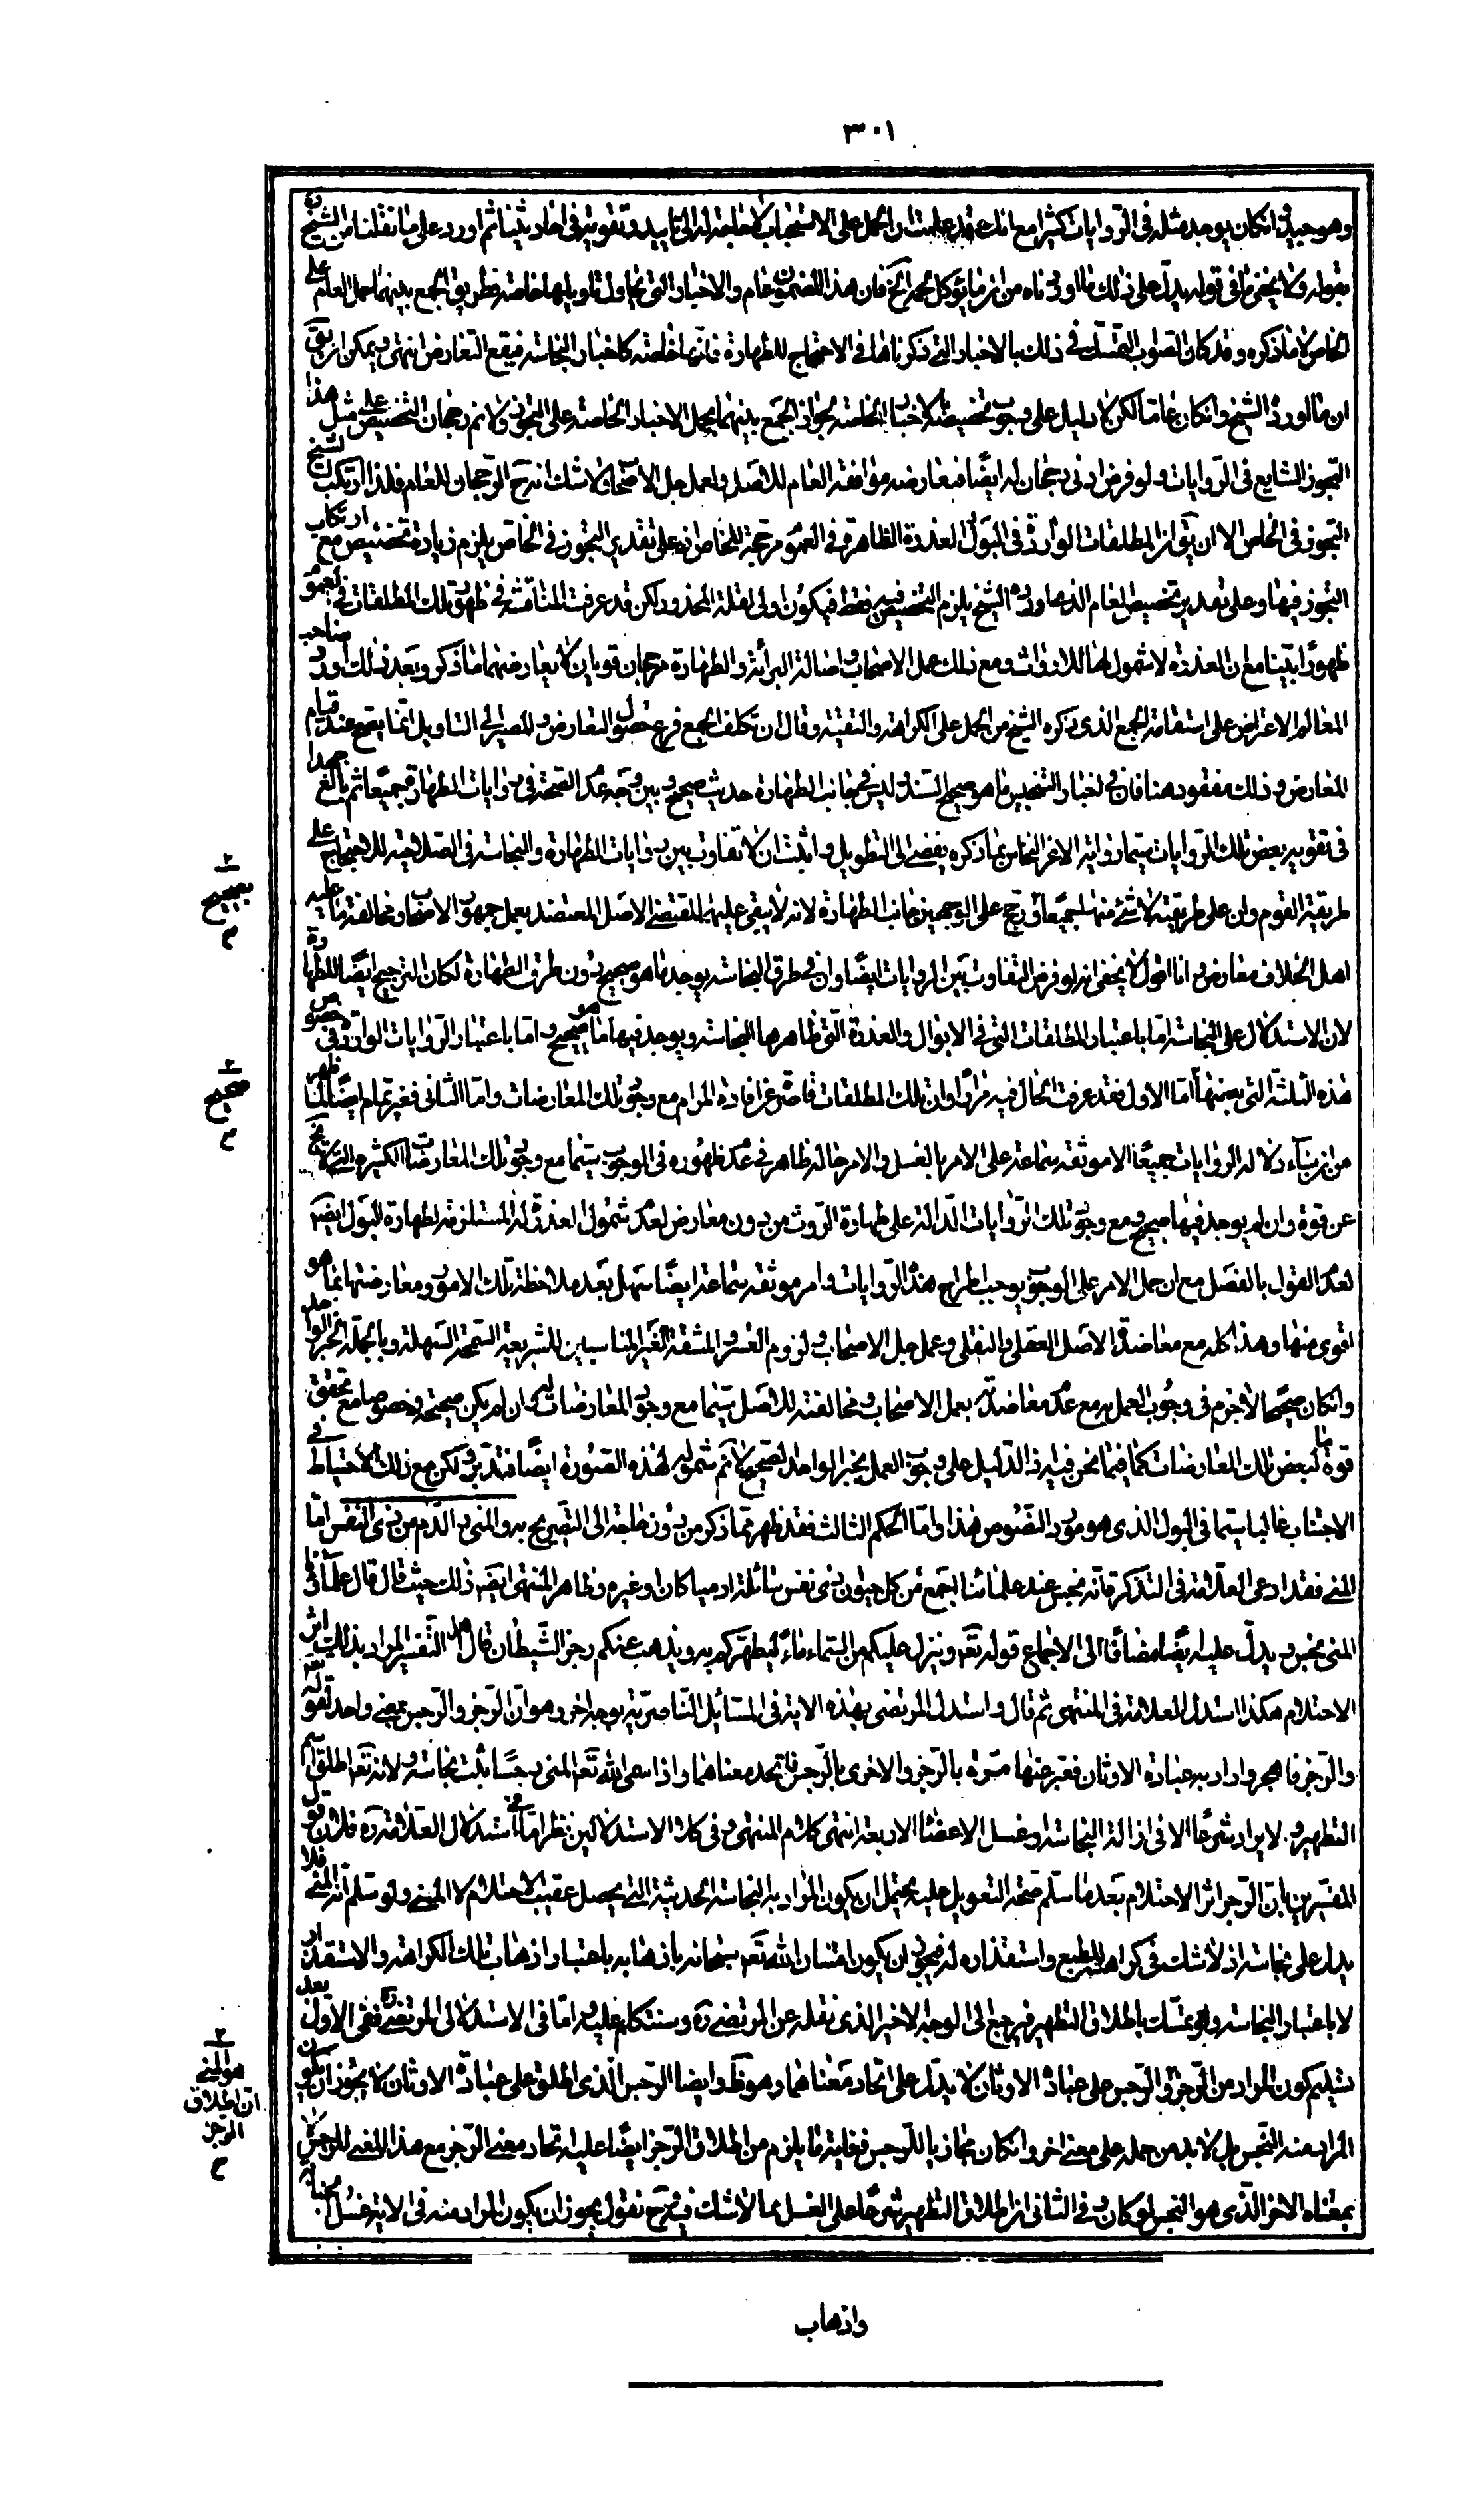 ٣٠١
وهو جيد وان كان يوجد مثله في الروايات كثيرا مع انك قد علمت ان الحمل على الاستحباب لا حاجة له الى تاييد وتقوية في احاديثنا ثم اورد على ما نقلنا من الشيخ
بقوله ولا يخفى ما في قوله يدل على ذلك ما اوردناه من ان ما يؤكل لحمه الخ فان هذا المضمون عام والاخبار التي يحاول تاويلها خاصة فطريق الجمع بينهما حمل العام على
الخاص لا ما ذكره وقد كان الصواب التمسك في ذلك بالاخبار التي ذكرناها في الاحتجاج للطهارة فانها خاصة كاخبار النجاسة فيقع التعارض انتهى ويمكن ان يق
ان ما اورده الشيخ وان كان عاما لكن لا دليل على وجوب تخصيصه بالاخبار الخاصة لجواز الجمع بينهما بحمل الاخبار الخاصة على التجوز ولا نم رجحان التخصيص على مثل هذا
التجوز الشايع في الروايات ولو فرض ادنى رجحان له ايضا فيعارضه موافقة العام للاصل ولعمل جل الاصحاب لا شك انه ح الرجحان للعام فلذا ارتكب الشيخ
التجوز في الخاص الا ان يق ان المطلقات الواردة في البول والعذرة الظاهرة في العموم مرجحة للخاص اذ على تقدير التجوز في الخاص يلزم زيادة تخصيص مع ارتكاب
التجوز فيها وعلى تقدير تخصيص العام الذي اورده الشيخ يلزم التخصيص فيه فقط فيكون اولى لقلة المحذور لكن قد عرفت المناقشة في ظهور تلك المطلقات في العموم
ظهورا بينا مع ان العذرة لا شمول لها للارواث ومع ذلك عمل الاصحاب واصالة البرائة والطهارة مرجحان قويان لا يعارضهما ما ذكر وبعد ذلك اورد صاحب
المعالم الاعتراض على استقامة الجمع الذي ذكره الشيخ من الحمل على الكراهة والتقية وقال ان تكلف الجمع فرع حصول التعارض والمصير الى التاويل انما يصح عند قيام
المعارض وذلك مفقود هنا فان في اخبار التنجيس ما هو صحيح السند وليس في جانب الطهارة حديث صحيح وبين وجه عدم الصحة في روايات الطهارة جميعا ثم بالغ جدا
في تقوية بعض تلك الروايات سيما رواية الاغر النحاس بما ذكره يفضي الى التطويل واثبت ان لا تفاوت بين روايات الطهارة والنجاسة في الصلاحية للاحتجاج على
طريقة القوم وان على طريقته لا شئ منهما جميعا ورجح على الوجهين جانب الطهارة لانه لا يبقى عليهما لمقتضى الاصل المعتضد بعمل جمهور الاصحاب ومخالفة ما عليه
اهل الخلاف معارض وانا اقول لا يخفى انه لو فرض التفاوت بين الروايات ايضا وان في طرق النجاسة يوجد ما هو صحيح دون طرق الطهارة لكان الترجيح ايضا للطهارة
لان الاستدلال على النجاسة اما باعتبار المطلقات التي في الابوال والعذرة التي ظاهرها النجاسة ويوجد فيها ما هو صحيح واما باعتبار الروايات الواردة في خصوص
هذه الثلثة التي بعينها اما الاول فقد عرفت الحال فيه مرارا وان تلك المطلقات قاصرة عن افادة المرام مع وجود تلك المعارضات واما الثاني فغير تمام ايضا لما ظهر
من ان بناء دلالة الروايات جميعا الا موثقة سماعة على الامر بالغسل والامر حاله ظاهر في عدم ظهوره في الوجوب سيما مع وجود تلك المعارضات الكثيرة التي لا يخ
عن قوة وان لم يوجد فيها صحيح ومع وجود تلك الروايات الدالة على طهارة الروث من دون معارض لعدم شمول العذرة له المستلزمة لطهارة البول ايضا
لعدم القول بالفصل مع ان حمل الامر على الوجوب يوجب اطراح هذه الروايات وامر موثقة سماعة ايضا سهل بعد ملاحظة تلك الامور ومعارضتها بما هو
اقوى منها وهذا كله مع معاضدة الاصل العقلي والنقلي وعمل جل الاصحاب ولزوم العسر والمشقة الغير المناسبين للشريعة السمحة السهلة وبالجملة الخبر الواحد
وان كان صحيحا لا جزم في وجوب العمل به مع عدم معاضدته بعمل الاصحاب ومخالفته للاصل سيما مع وجود المعارضات له وان لم يكن صحيحة وخصوصا مع تحقق
قوة ما لبعض تلك المعارضات كما فيما نحن فيه اذ الدليل على وجوب العمل بخبر الواحد الصحيح لا نم شموله لهذه الصورة ايضا فتدبر ولكن مع ذلك الاحتياط في
الاجتناب غالبا سيما في البول الذي هو مورد النصوص هذا واما الحكم الثالث فقد ظهر مما ذكر من دون حاجة الى التصريح به والمني والدم من ذي النفس اما
المني فقد ادعى العلامة في التذكرة انه نجس عند علمائنا اجمع من كل حيوان ذي نفس سائلة ادميا كان او غيره وظاهر المنتهى ايضا ذلك حيث قال قال علماؤنا
المني نجس ويدل عليه ايضا مضافا الى الاجماع قوله تعم وينزل عليكم من السماء ماء ليطهركم به ويذهب عنكم رجز الشيطان قال اهل التفسير المراد بذلك اثر
الاحتلام هكذا استدل العلامة في المنتهى ثم قال واستدل المرتضى بهذه الاية في المسائل الناصرية بوجه اخر وهو ان الرجز والرجس بمعنى واحد لقوله تعم
والرجز فاهجر واراد به عبادة الاوثان فعبر عنها مرة بالرجز والاخرى بالرجس فاتحد معناهما واذا سمى الله تعم المني رجسا ثبت نجاسته ولانه تعم اطلق اسم
التطهير ولا يراد شرعا الا في ازالة النجاسة او غسل الاعضاء الاربعة انتهى كلام المنتهى وفي كلا الاستدلالين نظر اما في استدلال العلامة ره فلان قول
المفسرين بان الرجز اثر الاحتلام بعد ما سلم صحة التعويل عليه يحتمل ان يكون المراد به النجاسة الحدثية التي يحصل عقيب الاحتلام لا المني ولو سلم انه المني فلا
يدل على نجاسته اذ لا شك في كراهة الطبع واستقذاره له فيجوز ان يكون امتنان الله تعم سبحانه باذهابه باعتبار اذهاب تلك الكراهة والاستقذار
لا باعتبار النجاسة ولو تمسك باطلاق التطهير فيرجع الى الوجه الاخير الذي نقله عن المرتضى ره وسنتكلم عليه واما في الاستدلالي المرتضى ره ففي الاول بعد
تسليم كون المراد من الرجز والرجس على عبادة الاوثان لا يدل على اتحاد معناهما وهو ظ وايضا الرجس الذي اطلق على عبادة الاوثان لا يجوز ان يكون
المراد منه النجس بل لا بد من حمله على معنى اخر وان كان مجازيا للرجس فغاية ما يلزم من اطلاق الرجز ايضا عليه اتحاد معنى الرجز مع هذا المعنى للرجس لا
بمعناه الاخر الذي هو النجس لو كان وفي الثاني ان اطلاق التطهير شرعا على الغسل مما لا شك فيه فح نقول يجوز ان يكون المراد منه في الاية غسل الجنابة
٢
بصحيح
م
٢
صحيح
م
٢
هو المني
ان اطلاق
الرجز
م
واذهاب